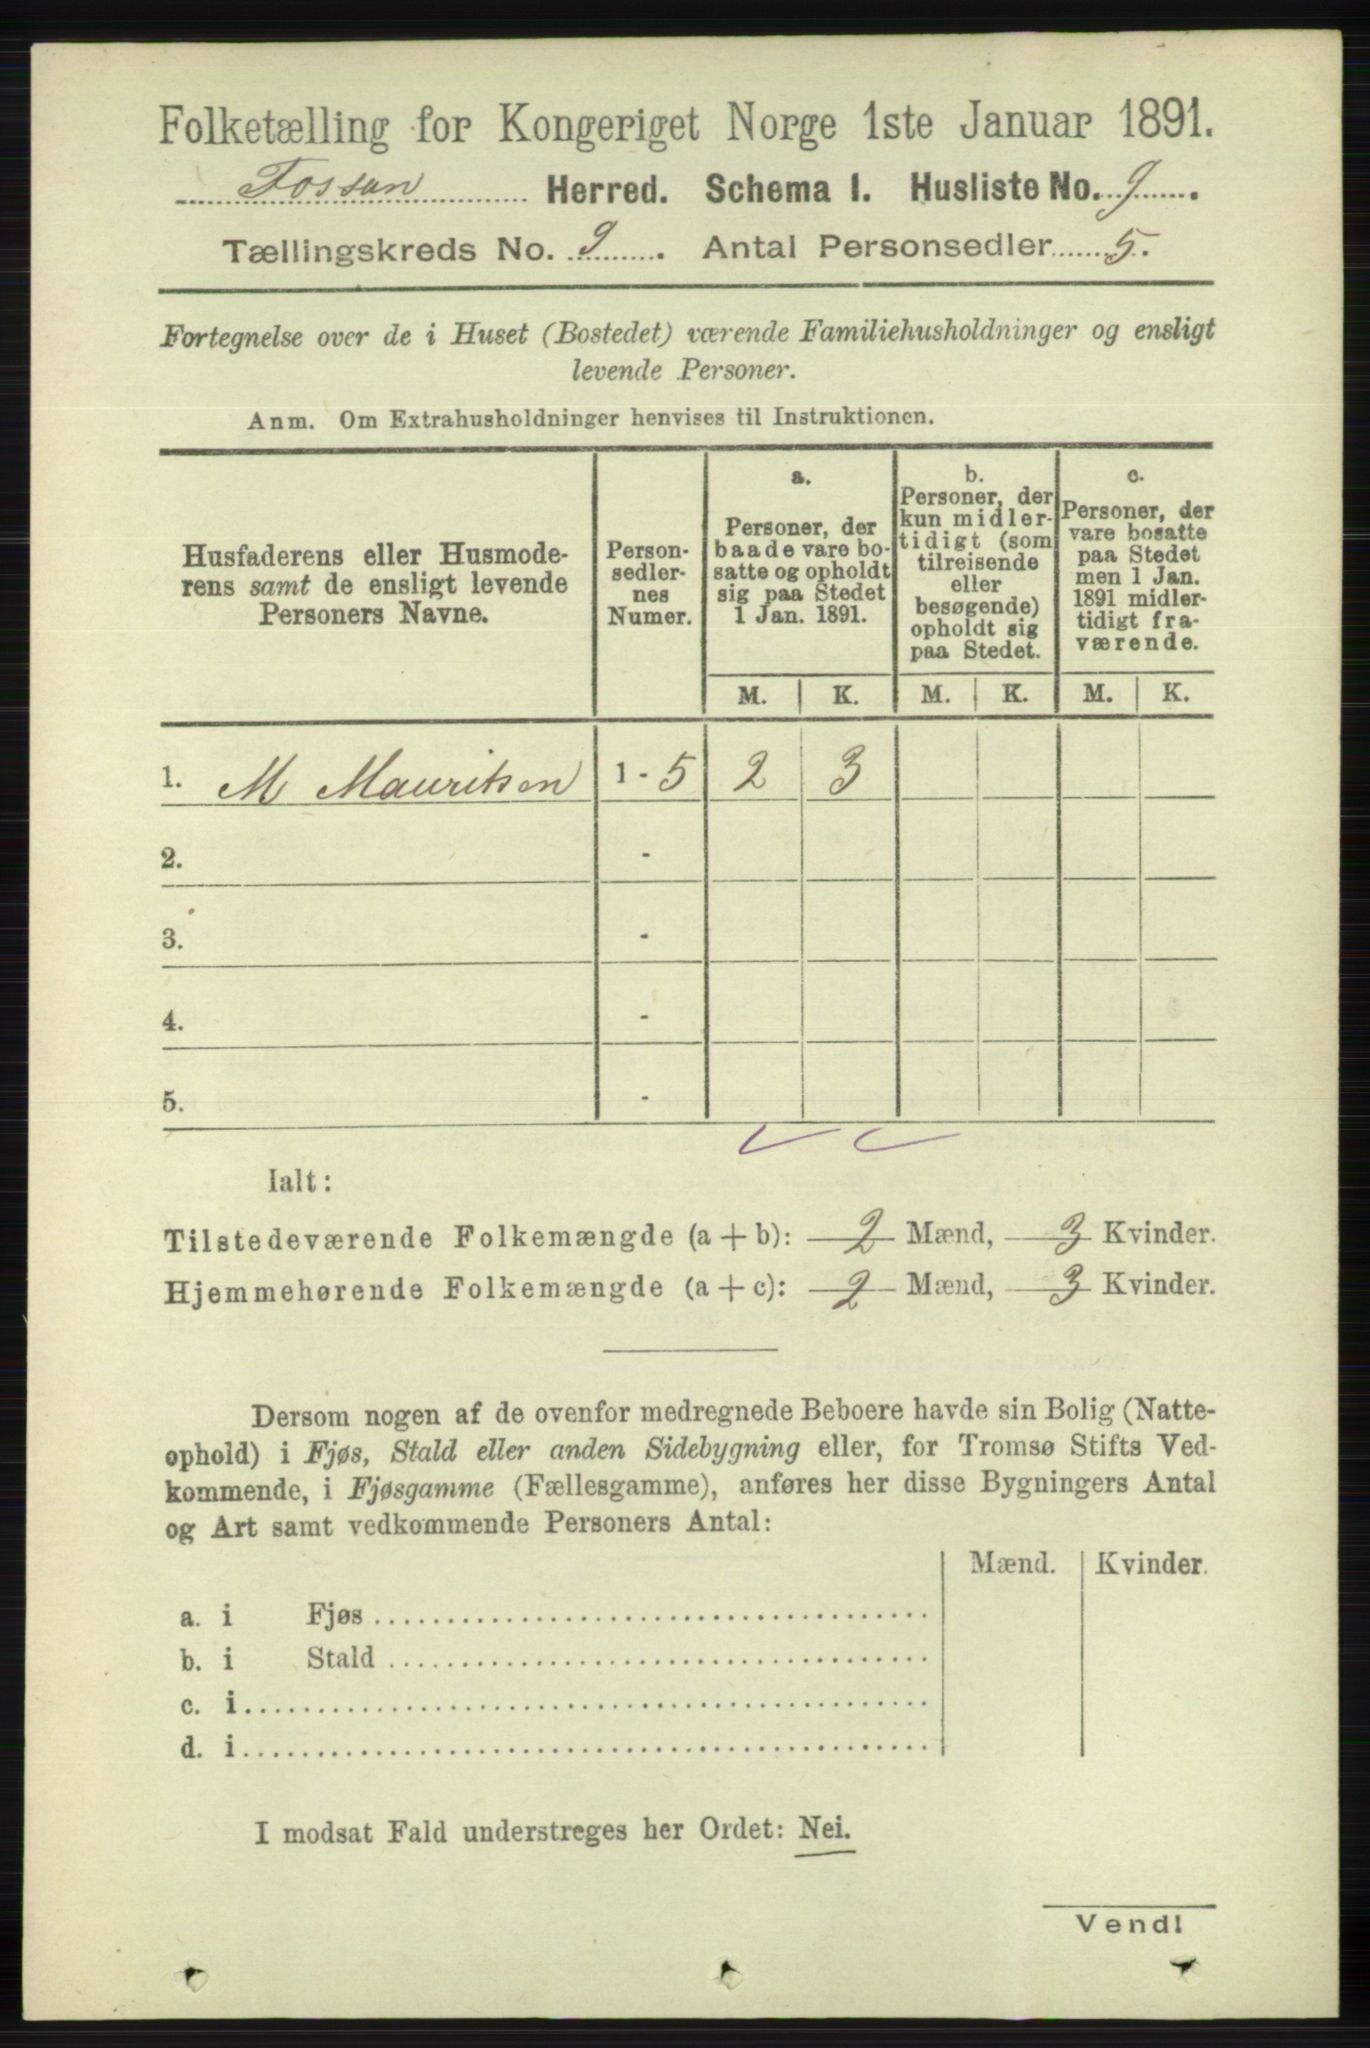 Folketælling for Kongeriget Norge 1ste Januar 1891.
Fossan Herred. Schema I. Husliste No. 9.
Tællingskreds No. 9. Antal Personsedler 5.
Fortegnelse over de i Huset (Bostedet) værende Familiehusholdninger og ensligt
levende Personer.
Anm. Om Extrahusholdninger henvises til Instruktionen.
Husfaderens eller Husmode-
rens samt de ensligt levende
Personers Navne.
Person-
sedler-
nes
Numer.
a.
Personer, der
baade vare bo-
satte og opholdt
sig paa Stedet
1 Jan. 1891.
b.
Personer, der
kun midler-
tidigt (som
tilreisende
eller
besøgende)
opholdt sig
paa Stedet.
c.
Personer, der
vare bosatte
paa Stedet
men 1 Jan.
1891 midler-
tidigt fra-
værende.
M. K. M. K. M. K.
1. M Mauritsen 1 - 5 2 3
2. -
3. -
4. -
5. -
Ialt:
Tilstedeværende Folkemængde (a + b): 2 Mænd, 3 Kvinder.
Hjemmehørende Folkemængde (a + c): 2 Mænd, 3 Kvinder.
Dersom nogen af de ovenfor medregnede Beboere havde sin Bolig (Natte-
ophold) i Fjøs, Stald eller anden Sidebygning eller, for Tromsø Stifts Ved-
kommende, i Fjøsgamme (Fællesgamme), anføres her disse Bygningers Antal
og Art samt vedkommende Personers Antal:
Mænd. Kvinder.
a. i Fjøs
b. i Stald
c. i
d. i
I modsat Fald understreges her Ordet: Nei.
Vend!